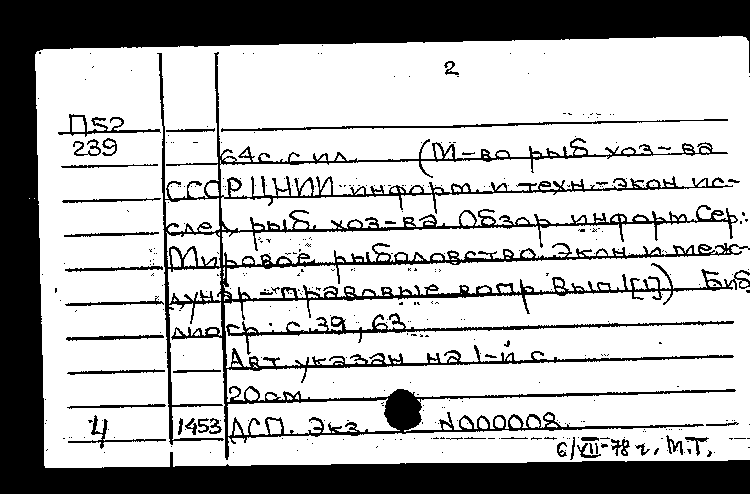 2
П52
239
64с. с ил. (М-во рыб. хоз-ва
СССР ЦНИИ информ. и техн.-экон. ис-
след. рыб. хоз-ва. Обзор. информ. Сер.:
Мировое рыболовство. Экон. и меж-
дунар-правовые вопр. Вып. 1[1]) Биб
лиогр: с. 39, 63.
Авт. указан на 1-й с.
20см.
4 1453 ДСП. Экз. N000008.
6/VII-78 г. М.Т.